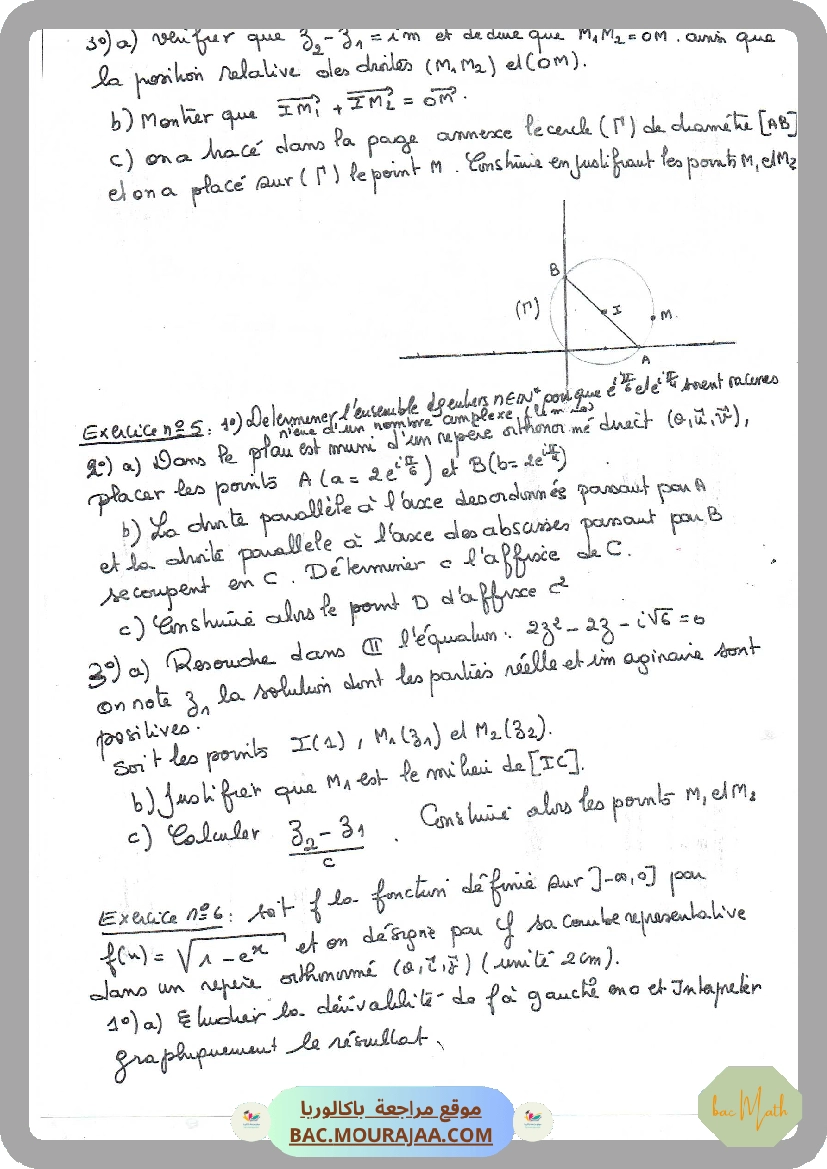 3°) a) vérifier que z₂ - z₁ = im et déduire que M₁M₂ = OM. ainsi que
la position relative des droites (M₁M₂) et (OM).
b) Montrer que IM₁ + IM₂ = OM.
c) on a tracé dans la page annexe le cercle (Γ) de diamètre [AB]
et on a placé sur (Γ) le point M. Construire en justifiant les points M₁ et M₂
B
(Γ)
I
M
A
Exercice n° 5 : 1°) Déterminer l'ensemble des entiers n ∈ ℕ* pour que e^{iπ/6} et e^{iπ/4} soient racines
n'ème d'un nombre complexe
2°) a) Dans le plan est muni d'un repère orthonormé direct (O, u, v),
placer les points A (a = 2e^{iπ/6}) et B (b = 2e^{iπ/4})
b) La droite parallèle à l'axe des ordonnés passant par A
et la droite parallele à l'axe des abscisses passant par B
se coupent en C. Déterminer c l'affixe de C.
c) Construire alors le point D d'affixe c²
3°) a) Resoudre dans ℂ l'équation : 2z² - 2z - i√6 = 0
on note z₁ la solution dont les parties réelle et imaginaire sont
positives.
Soit les points I(1), M₁(z₁) et M₂(z₂).
b) Justifier que M₁ est le milieu de [IC].
c) Calculer (z₂ - z₁)/c. Construire alors les points M₁ et M₂
Exercice n° 6 : soit f la fonction définie sur ]-∞, 0] par
f(x) = √(1 - eˣ) et on désigne par 𝒞 sa courbe representative
dans un repère orthonormé (O, i, j) (unité 2cm).
1°) a) Etudier la dérivabilité de f à gauche en 0 et Interpréter
graphiquement le résultat.
bacMath
موقع مراجعة باكالوريا
BAC.MOURAJAA.COM